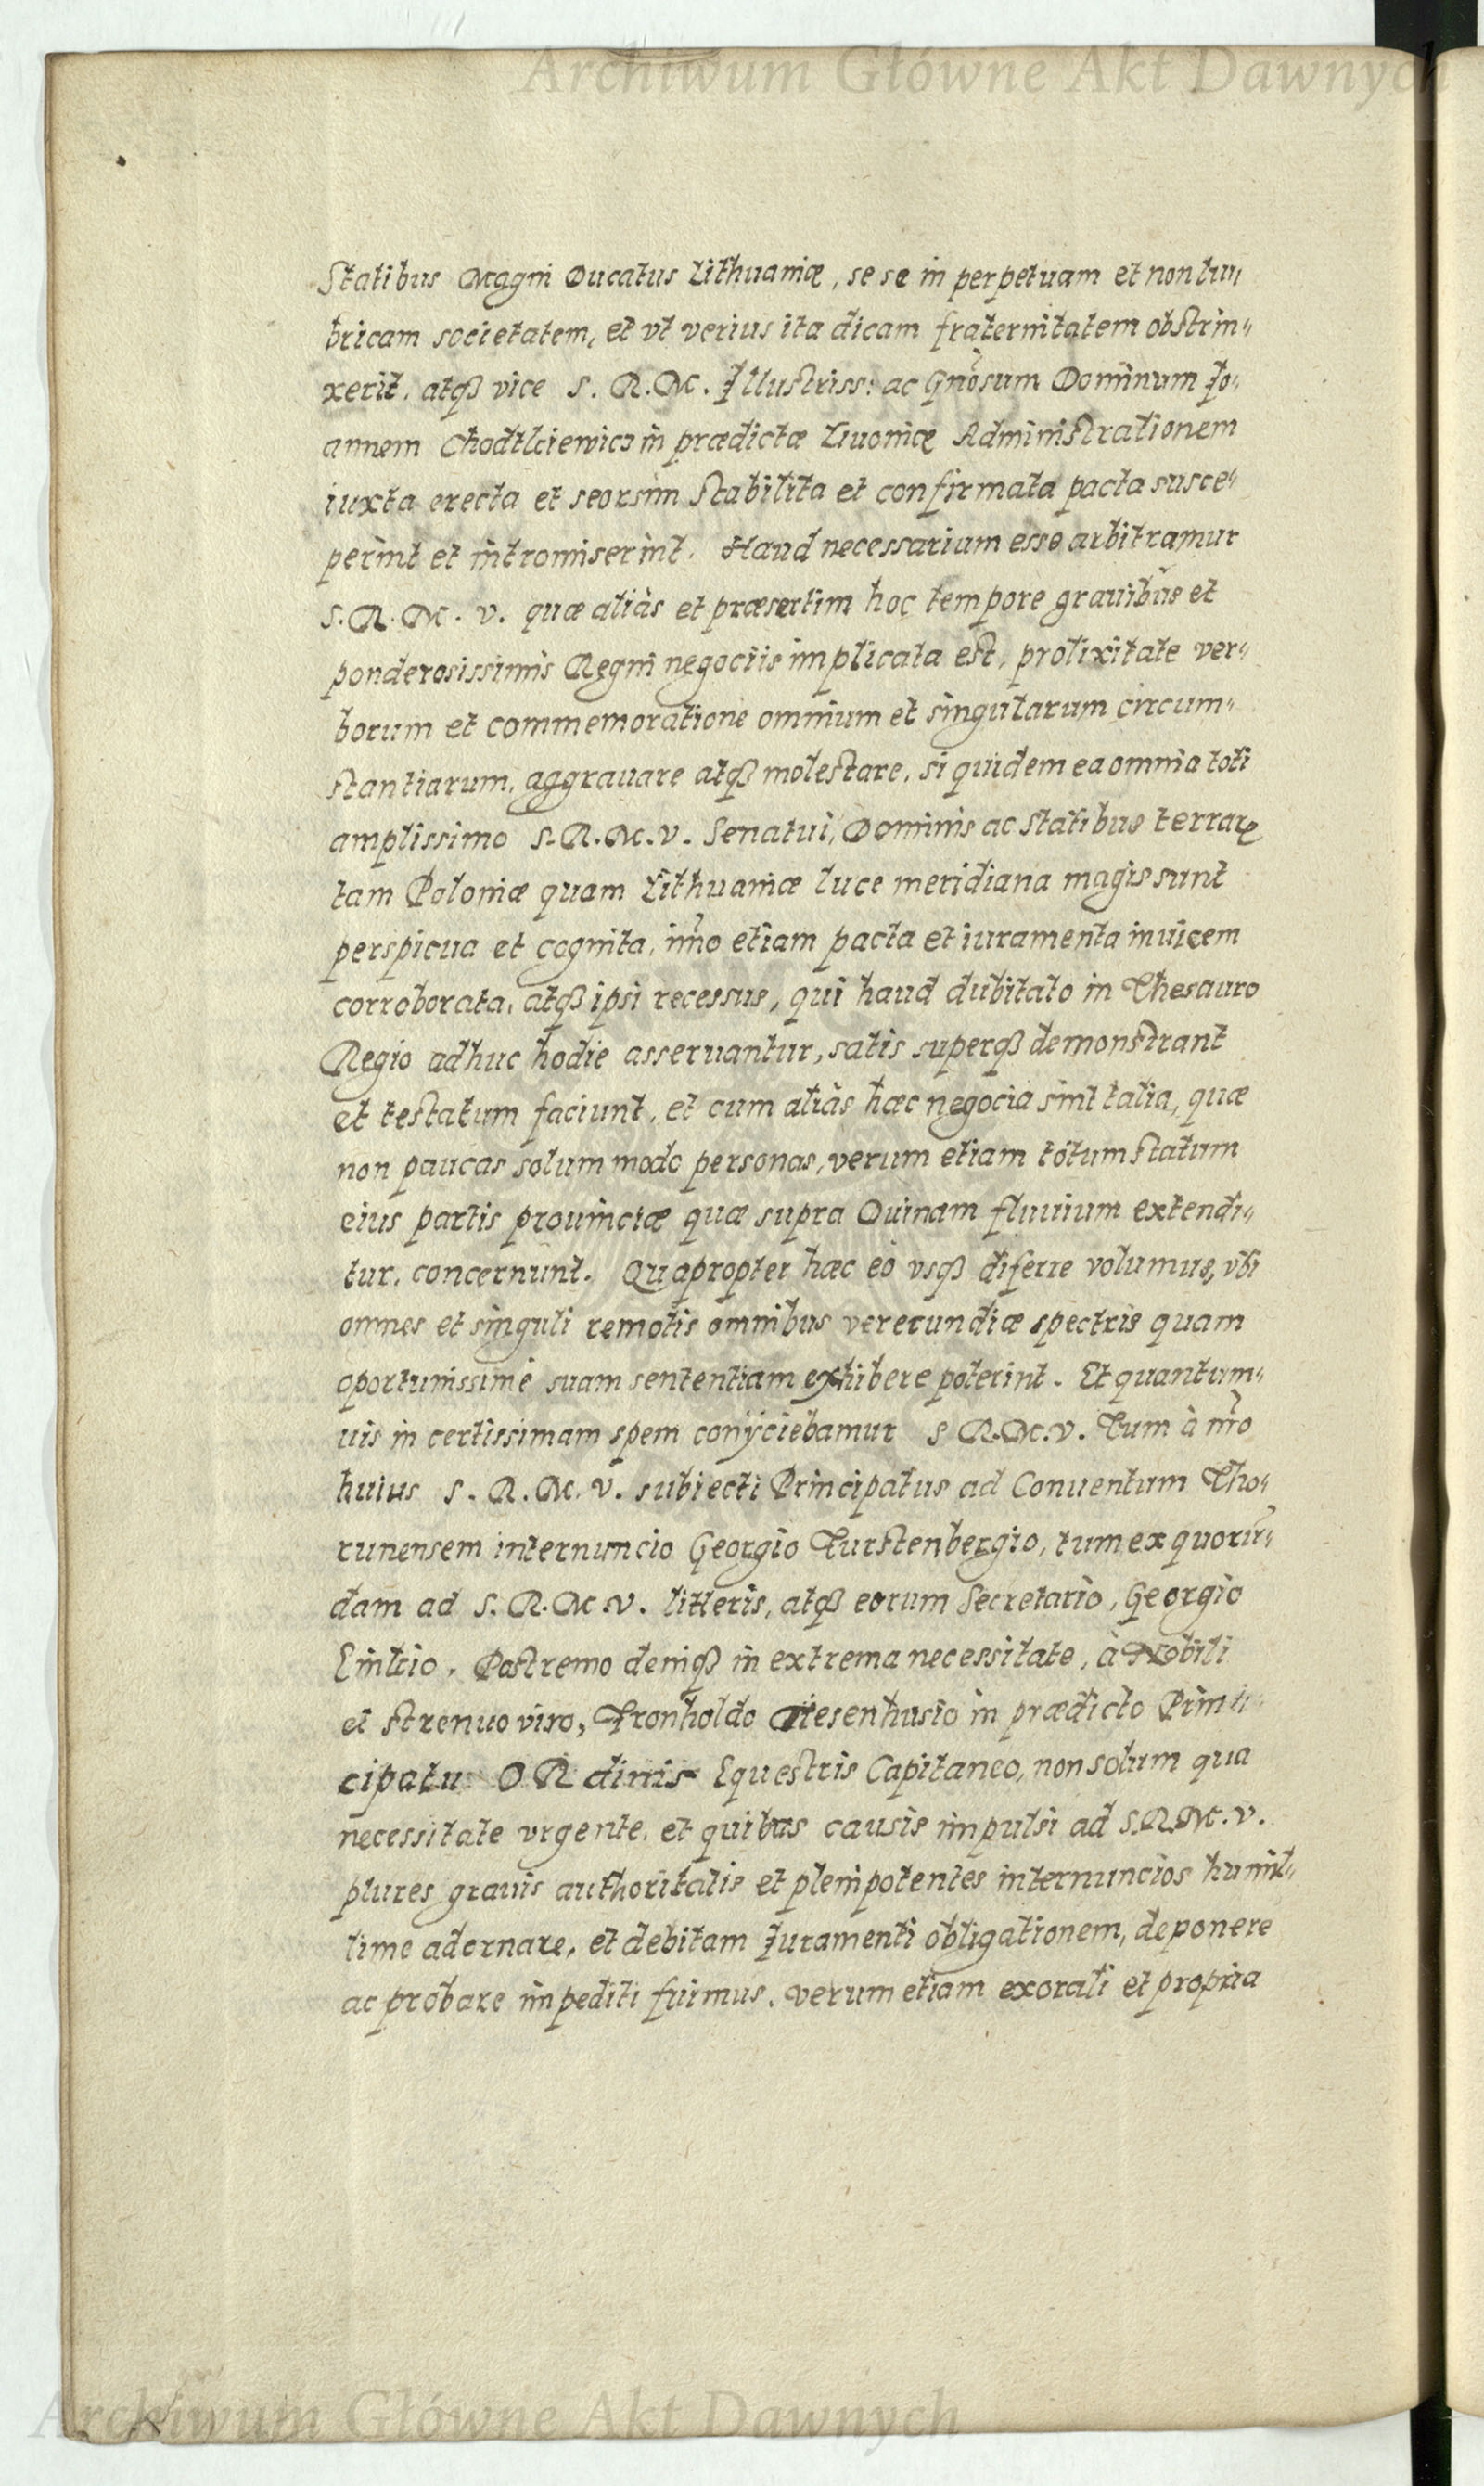 Archiwum Główne Akt Dawnych
Statibus Magni Ducatus Lithuaniæ, se se in perpetuam et non lu„
bricam societatem, et vt verius ita dicam fraternitatem obstrin„
xerit, atqꝫ vice S. R. M. Illustriss: ac Gnõsum Dominum Jo„
annem Chodtkiewicz in prædictæ Liuoniæ Administrationem
iuxta erecta et seorsim stabilita et confirmata pacta susce„
perint et intromiserint. Haud necessarium esse arbitramur
S. R. M. V. quæ aliàs et præsertim hoc tempore grauibus et
ponderosissimis Regni negociis implicata est, prolixitate ver„
borum et commemoratione omnium et singularum circum„
stantiarum, aggrauare atqꝫ molestare, si quidem ea omnia toti
amplissimo S. R. M. V. Senatui, Dominis ac statibus terrarꝝ
tam Poloniæ quam Lithuaniæ luce meridiana magis sunt
perspicua et cognita, imò etiam pacta et iuramenta inuicem
corroborata, atqꝫ ipsi recessus, qui haud dubitato in Thesauro
Regio adhuc hodie asseruantur, satis superqꝫ demonstrant
et testatum faciunt, et cum aliàs hæc negocia sint talia, quæ
non paucas solum modo personas, verum etiam totum statum
eius partis prouinciæ quæ supra Duinam fluuium extendi„
tur, concernunt. Quapropter hæc eò vsqꝫ diferre volumus, vbi
omnes et singuli remotis omnibus verecundiæ spectris quam
oportunissimè suam sententiam exhibere poterint. Et quantum„
uis in certissimam spem conÿciebamur S R. M. V. Tum à nr̃o
huius S. R. M. V. subiecti Principatus ad Conuentum Tho„
runensem internuncio Georgio Furstenbergio, tum ex quorũ„
dam ad S. R. M. V. litteris, atqꝫ eorum Secretario, Georgio
Postremo deniqꝫ in extrema necessitate, à Nobili
et strenuo viro, Fronholdo Tiesenhusio in prædicto Prin„
cipatu ORdinis Equestris Capitaneo, non solum qua
necessitate vrgente, et quibus causis impulsi ad S. R. M. V.
plures grauis authoritatis et plenipotentes internuncios humil„
lime adornare, et debitam Juramenti obligationem, deponere
ac probare impediti fuimus, verum etiam exorati et propria
Archiwum Główne Akt Dawnych